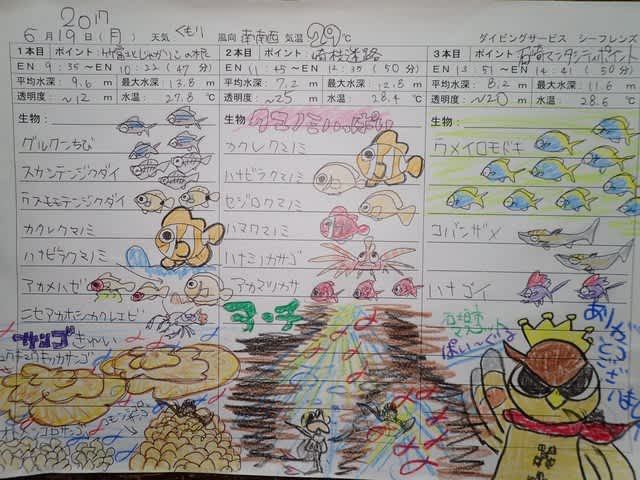 2017
6月19日(月) 天気 くもり 風向 南南西 気温 29℃
ダイビングサービス シーフレンズ
1本目 ポイント:竹富
EN 9:35～EN 10:22(47分)
平均水深:9.6m 最大水深:13.8m
透明度:～12m 水温:27.8℃
生物:
グルクンちび
スカシテンジクダイ
クロスジテンジクダイ
カクレクマノミ
ハナビラクマノミ
アカメハゼ
ニセアカホシカクレエビ
サンゴ きれい
2本目 ポイント:崎枝
EN 11:45～EN 12:35(50分)
平均水深:7.2m 最大水深:12.8m
透明度:～25m 水温:28.4℃
クマノミいっぱい
カクレクマノミ
ハナビラクマノミ
セジロクマノミ
ハマクマノミ
ハナミノカサゴ
アカマツカサ
アーチ
3本目 ポイント:石崎マンタシティポイント
EN 13:51～EN 14:41(50分)
平均水深:8.2m 最大水深:11.6m
透明度:～20m 水温:28.6℃
生物:
ウメイロモドキ
コバンザメ
ハナゴイ
ありがとうございます